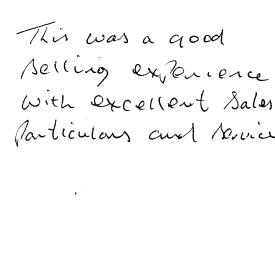 This was a good
selling experience
with excellent sales
particulars and service